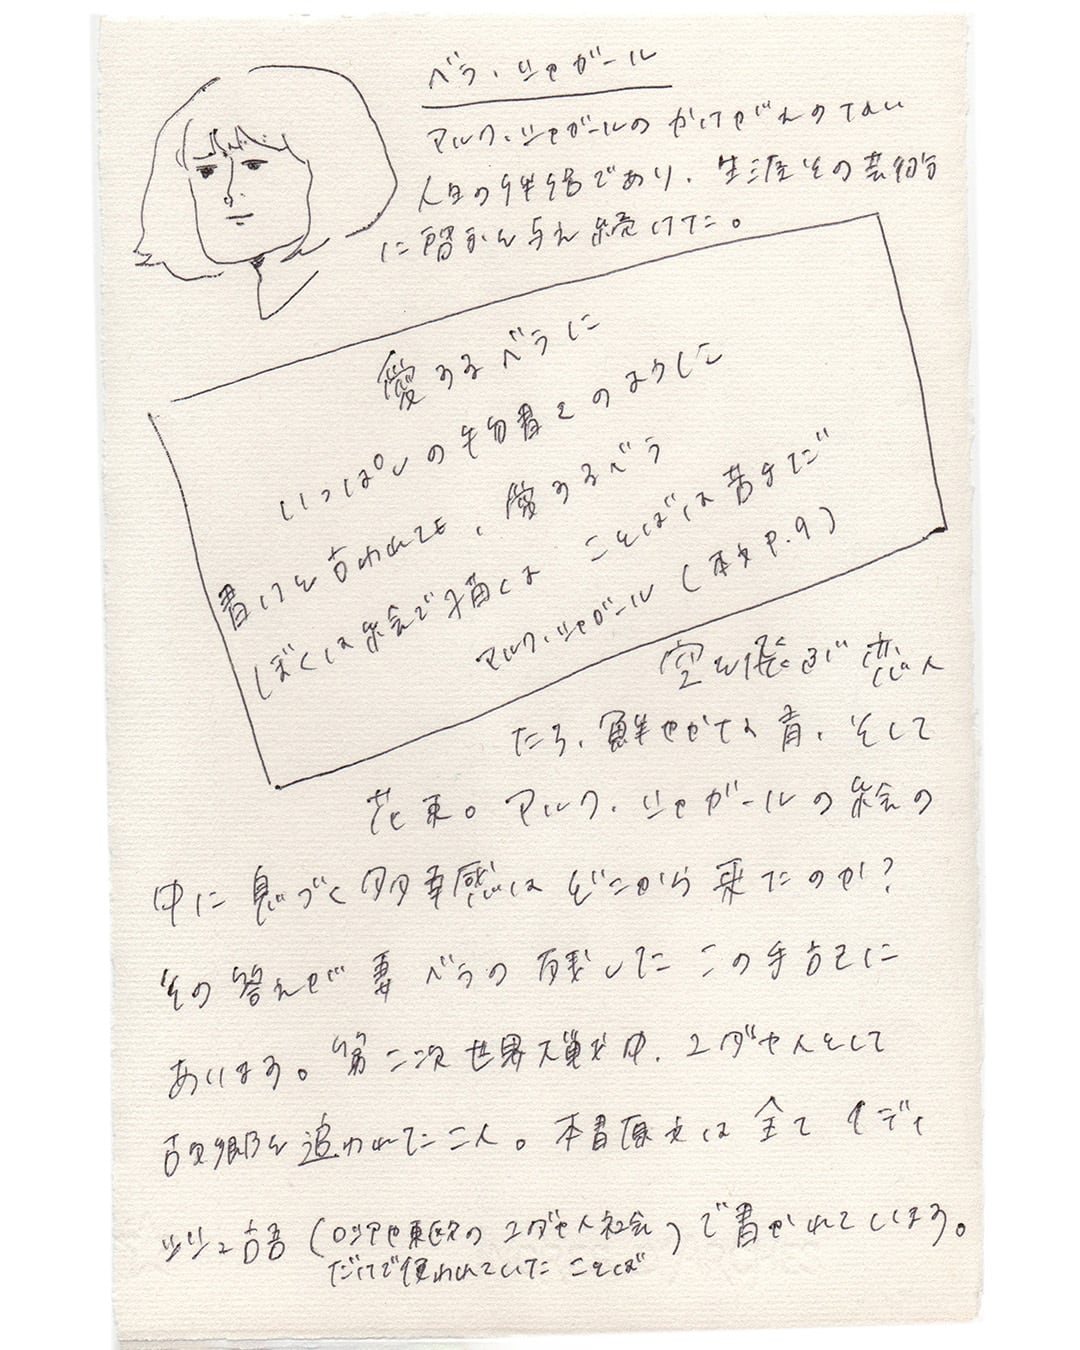 ベラ・シャガール
マルク・シャガールの かけがえのてない
人生の伴侶であり、生涯その芸術
に霊かを与え続けた。
愛するベラに
いっぱしの物書きのように
書けと言われても、愛するベラ
ぼくは絵で描くほ ことばは苦手だ
マルク・シャガール (本文P.9)
空を飛ぶ恋人
たち、鮮やかな青、そして
花束。マルク・シャガールの絵の
中に息づく多幸感はどこから来たのか?
その答えが妻ベラの残したこの手記に
あります。第二次世界大戦中、ユダヤ人として
故郷を追われた二人。本書原文は全てイディ
ッシュ語(ロシアや東欧のユダヤ人社会
だけで使われていたことば)で書かれています。